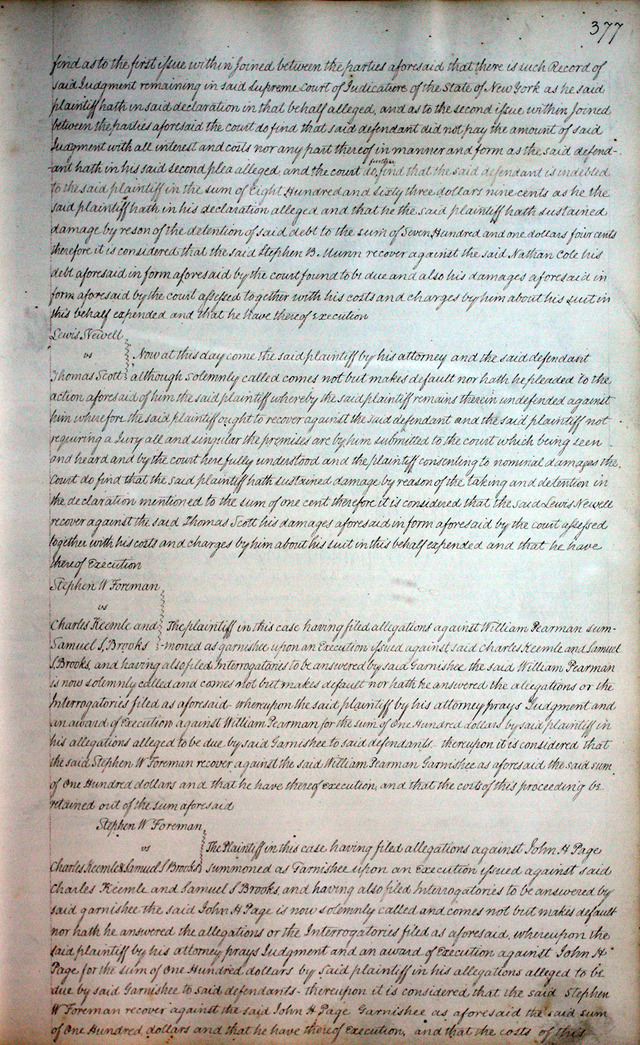 377
find as to the first issue within Joined between the parties aforesaid that there is such Record of
said Judgment remaining in said Supreme Court of Judicature of the State of New York as he said
plaintiff hath in said declaration in that behalf alleged, and as to the second issue within Joined
between the parties aforesaid the court do find that said defendant did not pay the amount of said
Judgment with all interest and costs nor any part thereof in manner and form as the said defend-
ant hath in his said second plea alleged, and the court do further find that the said defendant is indebted
to the said plaintiff in the sum of Eight Hundred and Sixty three dollars nine cents as he the
said plaintiff hath in his declaration alleged and that he the said plaintiff hath sustained
damage by reson of the detention of said debt to the sum of Seven Hundred and one dollars four cents
therefore it is considered that the said Stephen B. Munn recover against the said Nathan Cole his
debt aforesaid in form aforesaid by the court found to be due and also his damages aforesaid in
form aforesaid by the court assessed together with his costs and charges by him about his suit in
this behalf expended and that he have thereof Execution
Lewis Newell
vs Now at this day come the said plaintiff by his attorney and the said defendant
Thomas Scott although solemnly called comes not but makes default nor hath he pleaded to the
action aforesaid of him the said plaintiff whereby the said plaintiff remains therein undefended against
him wherefore the said plaintiff ought to recover against the said defendant and the said plaintiff not
requiring a Jury all and singular the premises are by him submitted to the court which being seen
and heard and by the court here fully understood and the plaintiff consenting to nominal damages the
Court do find that the said plaintiff hath sustained damage by reason of the taking and detention in
the declaration mentioned to the sum of one cent therefore it is considered that the Said Lewis Newell
recover against the said Thomas Scott his damages aforesaid in form aforesaid by the court assessed
together with his costs and charges by him about his suit in this behalf expended and that he have
thereof Execution
Stephen W Foreman
vs
Charles Keemle and The plaintiff in this case having filed allegations against William Pearman sum-
Samuel S, Brooks -moned as garnishee upon an Execution issued against said Charles Keemle and Samuel
S, Brooks, and having also filed Interrogatories to be answered by said Garnishee the said William Pearman
is now solemnly called and comes not but makes default nor hath he answered the allegations or the
Interrogatories filed as aforesaid- whereupon the said plaintiff by his attorney prays Judgment and
an award of Execution against William Pearman for the sum of One Hundred dollars by said plaintiff in
his allegations alleged to be due by said Garnishee to said defendants- thereupon it is considered that
the said Stephen W Foreman recover against the said William Pearman Garnishee as aforesaid the said sum
of One Hundred dollars and that he have thereof execution, and that the costs of this proceeding be
retained out of the sum aforesaid
Stephen W Foreman
vs The Plaintiff in this case having filed allegations against John H Page
Charles Keemle & Samuel S Brooks summoned as Garnishee upon an Execution issued against said
Charles Keemle and Samuel S Brooks and having also filed Interrogatories to be answered by
said garnishee the said John H Page is now solemnly called and comes not but makes default
nor hath he answered the allegations or the Interrogatories filed as aforesaid, whereupon the
said plaintiff by his attorney prays Judgment and an award of Execution against John H
Page for the sum of One Hundred dollars by Said plaintiff in his allegations alleged to be
due by said Garnishee to said defendants- thereupon it is considered that the said Stephen
W Foreman recover against the said John H Page Garnishee as aforesaid the said sum
of One Hundred dollars and that he have thereof Execution, and that the costs of this